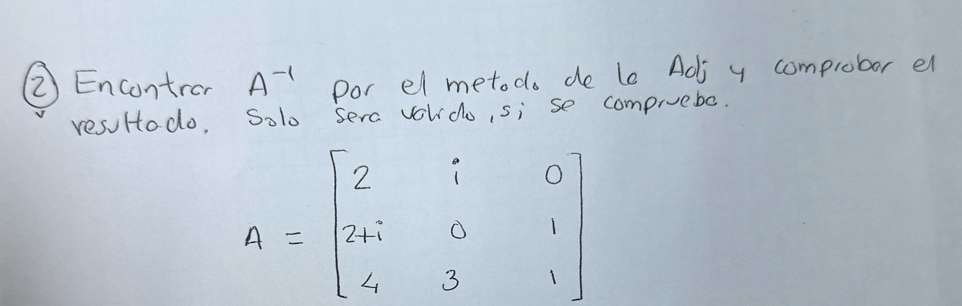 ② Encontrar A⁻¹ por el metodo de la Adj y comprobar el
resultado. Solo sera valido, si se comprueba.
2 i 0
A = 2+i 0 1
4 3 1